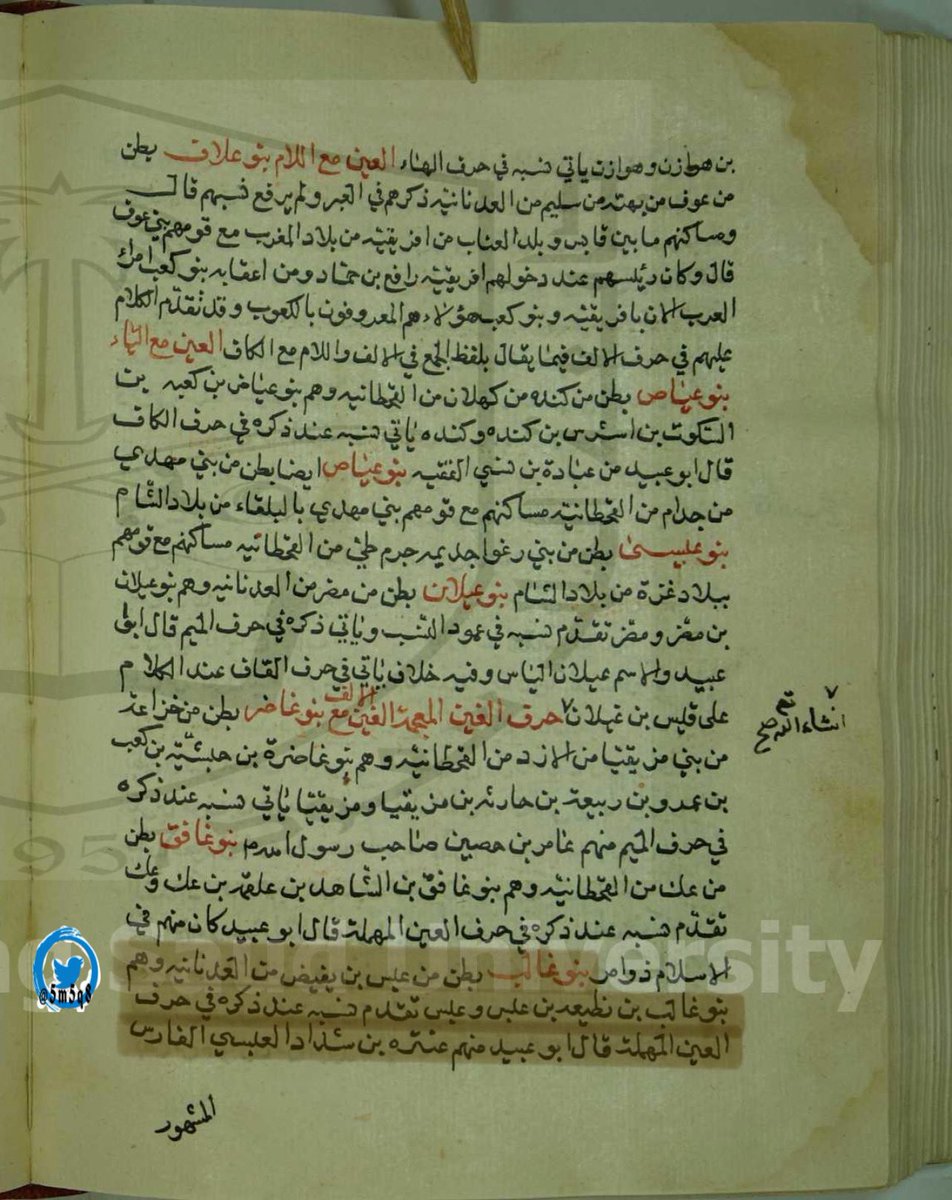 بن هوازن وهوازن ياتي نسبه في حرف الهاء العين مع اللام بنو علاق بطن
من عوف من بهته من سليم من العدنانيه ذكرهم في العبر ولم يرفع نسبهم قال
ومساكنهم ما بين قابس وبلد العناب من افريقيه من بلاد المغرب مع قومهم بني عوف
قال وكان رئيسهم عند دخولهم افريقيه رافع بن حماد ومن اعقابه بنو كعب امراء
العرب الان بافريقيه وبنو كعب هؤلاء هم المعروفون بالكعوب وقد تقدم الكلام
عليهم في حرف الالف فيما يقال بلفظ الجمع في الالف واللام مع الكاف العين مع الياء
بنو عياض بطن من كنده من كهلان من القحطانيه وهم بنو عياض بن كعبه بن
السكوت بن اسرس بن كنده وكنده ياتي نسبه عند ذكره في حرف الكاف
قال ابو عبيد من عبادة بن نسي الفقيه بنو عياض ايضا بطن من بني مهدي
من جدام من القحطانيه مساكنهم مع قومهم بني مهدي بالبلقاء من بلاد الشام
بنو عيسى بطن من بني رغوا جديمه جرم طي من القحطانيه مساكنهم مع قومهم
ببلاد غزة من بلاد الشام بنو عيلان بطن من مضر من العدنانيه وهم بنو عيلان
بن مضر ومضر تقدم نسبه في عمود النسب وياتي ذكره في حرف الميم قال ابو
عبيد والاسم عيلان الياس وفيه خلاف ياتي في حرف القاف عند الكلام
على قيس بن عيلان ٧ حرف الغين المعجمة الغين مع الالف بنو غاضر بطن من خزاعه
٧ انشاء الله تع صح
من بني مزيقيا من الازد من القحطانيه وهم بنو غاضرة بن حبشية بن كعب
بن عمرو بن ربيعة بن حارثه بن مزيقيا ومزيقيا ياتي نسبه عند ذكره
في حرف الميم منهم عامر بن حصين صاحب رسول الله م بنو غافق بطن
من عك من القحطانيه وهم بنو غافق بن الشاهد بن علقمه بن عك وعك
تقدم نسبه عند ذكره في حرف العين المهملة قال ابو عبيد كان منهم في
الاسلام ذوامر بنو غالب بطن من عبس بن بغيض من العدنانيه وهم
بنو غالب بن نطيعه بن عبس وعبس تقدم نسبه عند ذكره في حرف
العين المهملة قال ابو عبيد منهم عنتره بن شداد العبسي الفارس
المشهور
King Saud University
1957
@5m5q8